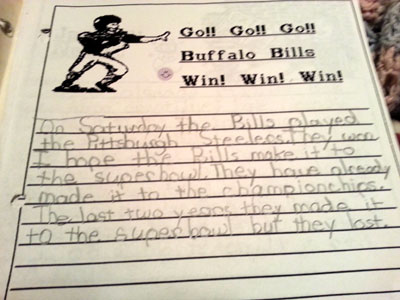 Go!! Go!! Go!!
Buffalo Bills
Win! Win! Win!
On Saturday the Bills played
the Pittsburgh Steelers. They won
I hope the Bills make it to
the superbowl. They have already
made it to the championchips.
The last two years they made it
to the superbowl but they lost.